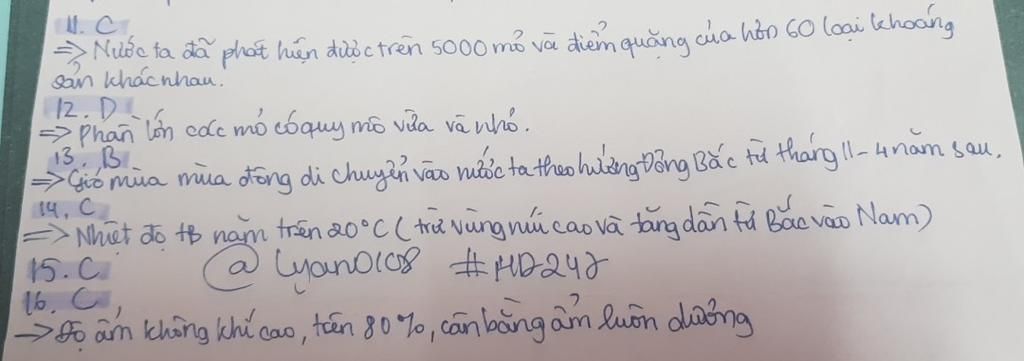 11. C
=> Nước ta đã phát hiện được trên 5000 mỏ và điểm quặng của hơn 60 loại khoáng
sản khác nhau.
12. D
=> Phần lớn các mỏ có quy mô vừa và nhỏ.
13. B
=> Gió mùa mùa đông di chuyển vào nước ta theo hướng Đông Bắc từ tháng 11-4 năm sau.
14. C
=> Nhiệt độ tb năm trên 20°C (trừ vùng núi cao và tăng dần từ Bắc vào Nam)
15. C @Lyan0108 #HD247
16. C
-> Độ ẩm không khí cao, trên 80%, cân bằng ẩm luôn dương